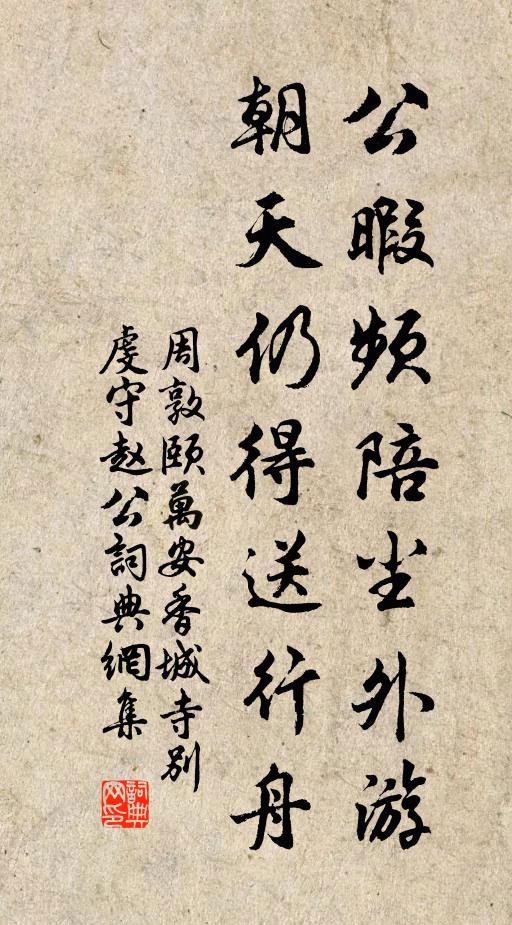 公暇频陪尘外游
朝天仍得送行舟
周敦颐萬安香城寺别
虔守赵公詞典網集
詞典
网印